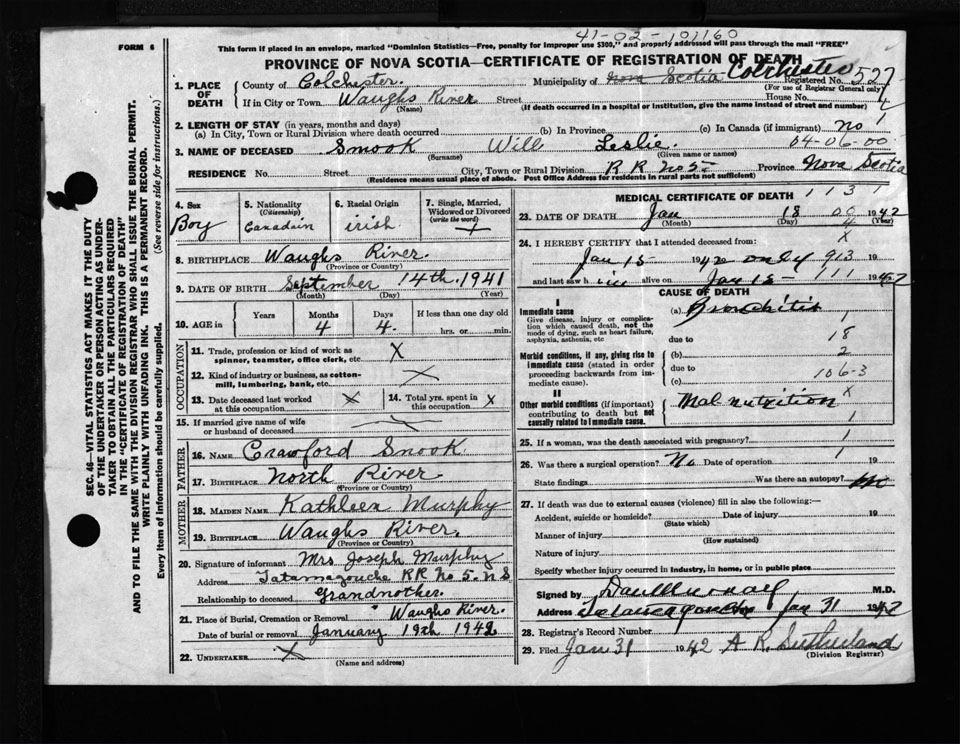 41-02-101160
FORM 6
This form if placed in an envelope, marked "Dominion Statistics—Free, penalty for improper use $300," and properly addressed will pass through the mail "FREE"
PROVINCE OF NOVA SCOTIA—CERTIFICATE OF REGISTRATION OF DEATH
1. PLACE OF DEATH
County of Colchester. Municipality of Nova Scotia Colchester Registered No. 527
(For use of Registrar General only)
If in City or Town Waughs River Street House No.
(Name) (If death occurred in a hospital or institution, give the name instead of street and number)
2. LENGTH OF STAY (in years, months and days)
(a) In City, Town or Rural Division where death occurred (b) In Province (c) In Canada (if immigrant) no
04-06-00
3. NAME OF DECEASED Smook Will Leslie.
(Surname) (Given name or names)
RESIDENCE No. Street City, Town or Rural Division R R No 5 Province Nova Scotia
(Residence means usual place of abode. Post Office Address for residents in rural parts not sufficient)
4. Sex
Boy
5. Nationality
(Citizenship)
Canadain
6. Racial Origin
irish
7. Single, Married, Widowed or Divorced
(write the word)
8. BIRTHPLACE Waughs River.
(Province or Country)
9. DATE OF BIRTH September 14th. 1941
(Month) (Day) (Year)
10. AGE in
Years Months Days If less than one day old
4 4. hrs. or min.
OCCUPATION
11. Trade, profession or kind of work as spinner, teamster, office clerk, etc X
12. Kind of industry or business, as cotton-mill, lumbering, bank, etc. X
13. Date deceased last worked at this occupation X
14. Total yrs. spent in this occupation X
15. If married give name of wife or husband of deceased
FATHER
16. NAME Crawford Snook.
17. BIRTHPLACE North River
(Province or Country)
MOTHER
18. MAIDEN NAME Kathleen Murphy
19. BIRTHPLACE Waughs River.
(Province or Country)
20. Signature of informant Mrs Joseph Murphy
Address Tatamagouche RR No 5. N S
Relationship to deceased grandmother.
21. Place of Burial, Cremation or Removal Waughs River.
Date of burial or removal January 19th 1942
22. UNDERTAKER X
(Name and address)
MEDICAL CERTIFICATE OF DEATH
1 1 3 1
23. DATE OF DEATH Jan 18 1942
(Month) (Day) (Year)
24. I HEREBY CERTIFY that I attended deceased from:
Jan 15 1942 only 913
and last saw h alive on Jan 15 111 1942
CAUSE OF DEATH
I
Immediate cause
Give disease, injury or complication which caused death, not the mode of dying, such as heart failure, asphyxia, asthenia, etc
(a) Bronchitis
1
due to 18
Morbid conditions, if any, giving rise to immediate cause (stated in order proceeding backwards from immediate cause).
(b) 2
due to
(c) 106-3
II
Other morbid conditions (if important) contributing to death but not causally related to immediate cause.
X
Malnutrition
1
25. If a woman, was the death associated with pregnancy? 1
26. Was there a surgical operation? No Date of operation 1 19
State findings Was there an autopsy? no
27. If death was due to external causes (violence) fill in also the following:—
Accident, suicide or homicide? Date of injury 19
(State which)
Manner of injury
(How sustained)
Nature of injury
Specify whether injury occurred in industry, in home, or in public place
Signed by M.D.
Address Jan 31 1942
28. Registrar's Record Number
29. Filed Jan 31 1942 A R. Sutherland
(Division Registrar)
SEC. 46—VITAL STATISTICS ACT MAKES IT THE DUTY
OF THE UNDERTAKER OR PERSON ACTING AS UNDER-
TAKER TO OBTAIN ALL THE PARTICULARS REQUIRED
IN THE "CERTIFICATE OF REGISTRATION OF DEATH"
AND TO FILE THE SAME WITH THE DIVISION REGISTRAR WHO SHALL ISSUE THE BURIAL PERMIT.
WRITE PLAINLY WITH UNFADING INK. THIS IS A PERMANENT RECORD.
Every item of information should be carefully supplied. (See reverse side for instructions.)